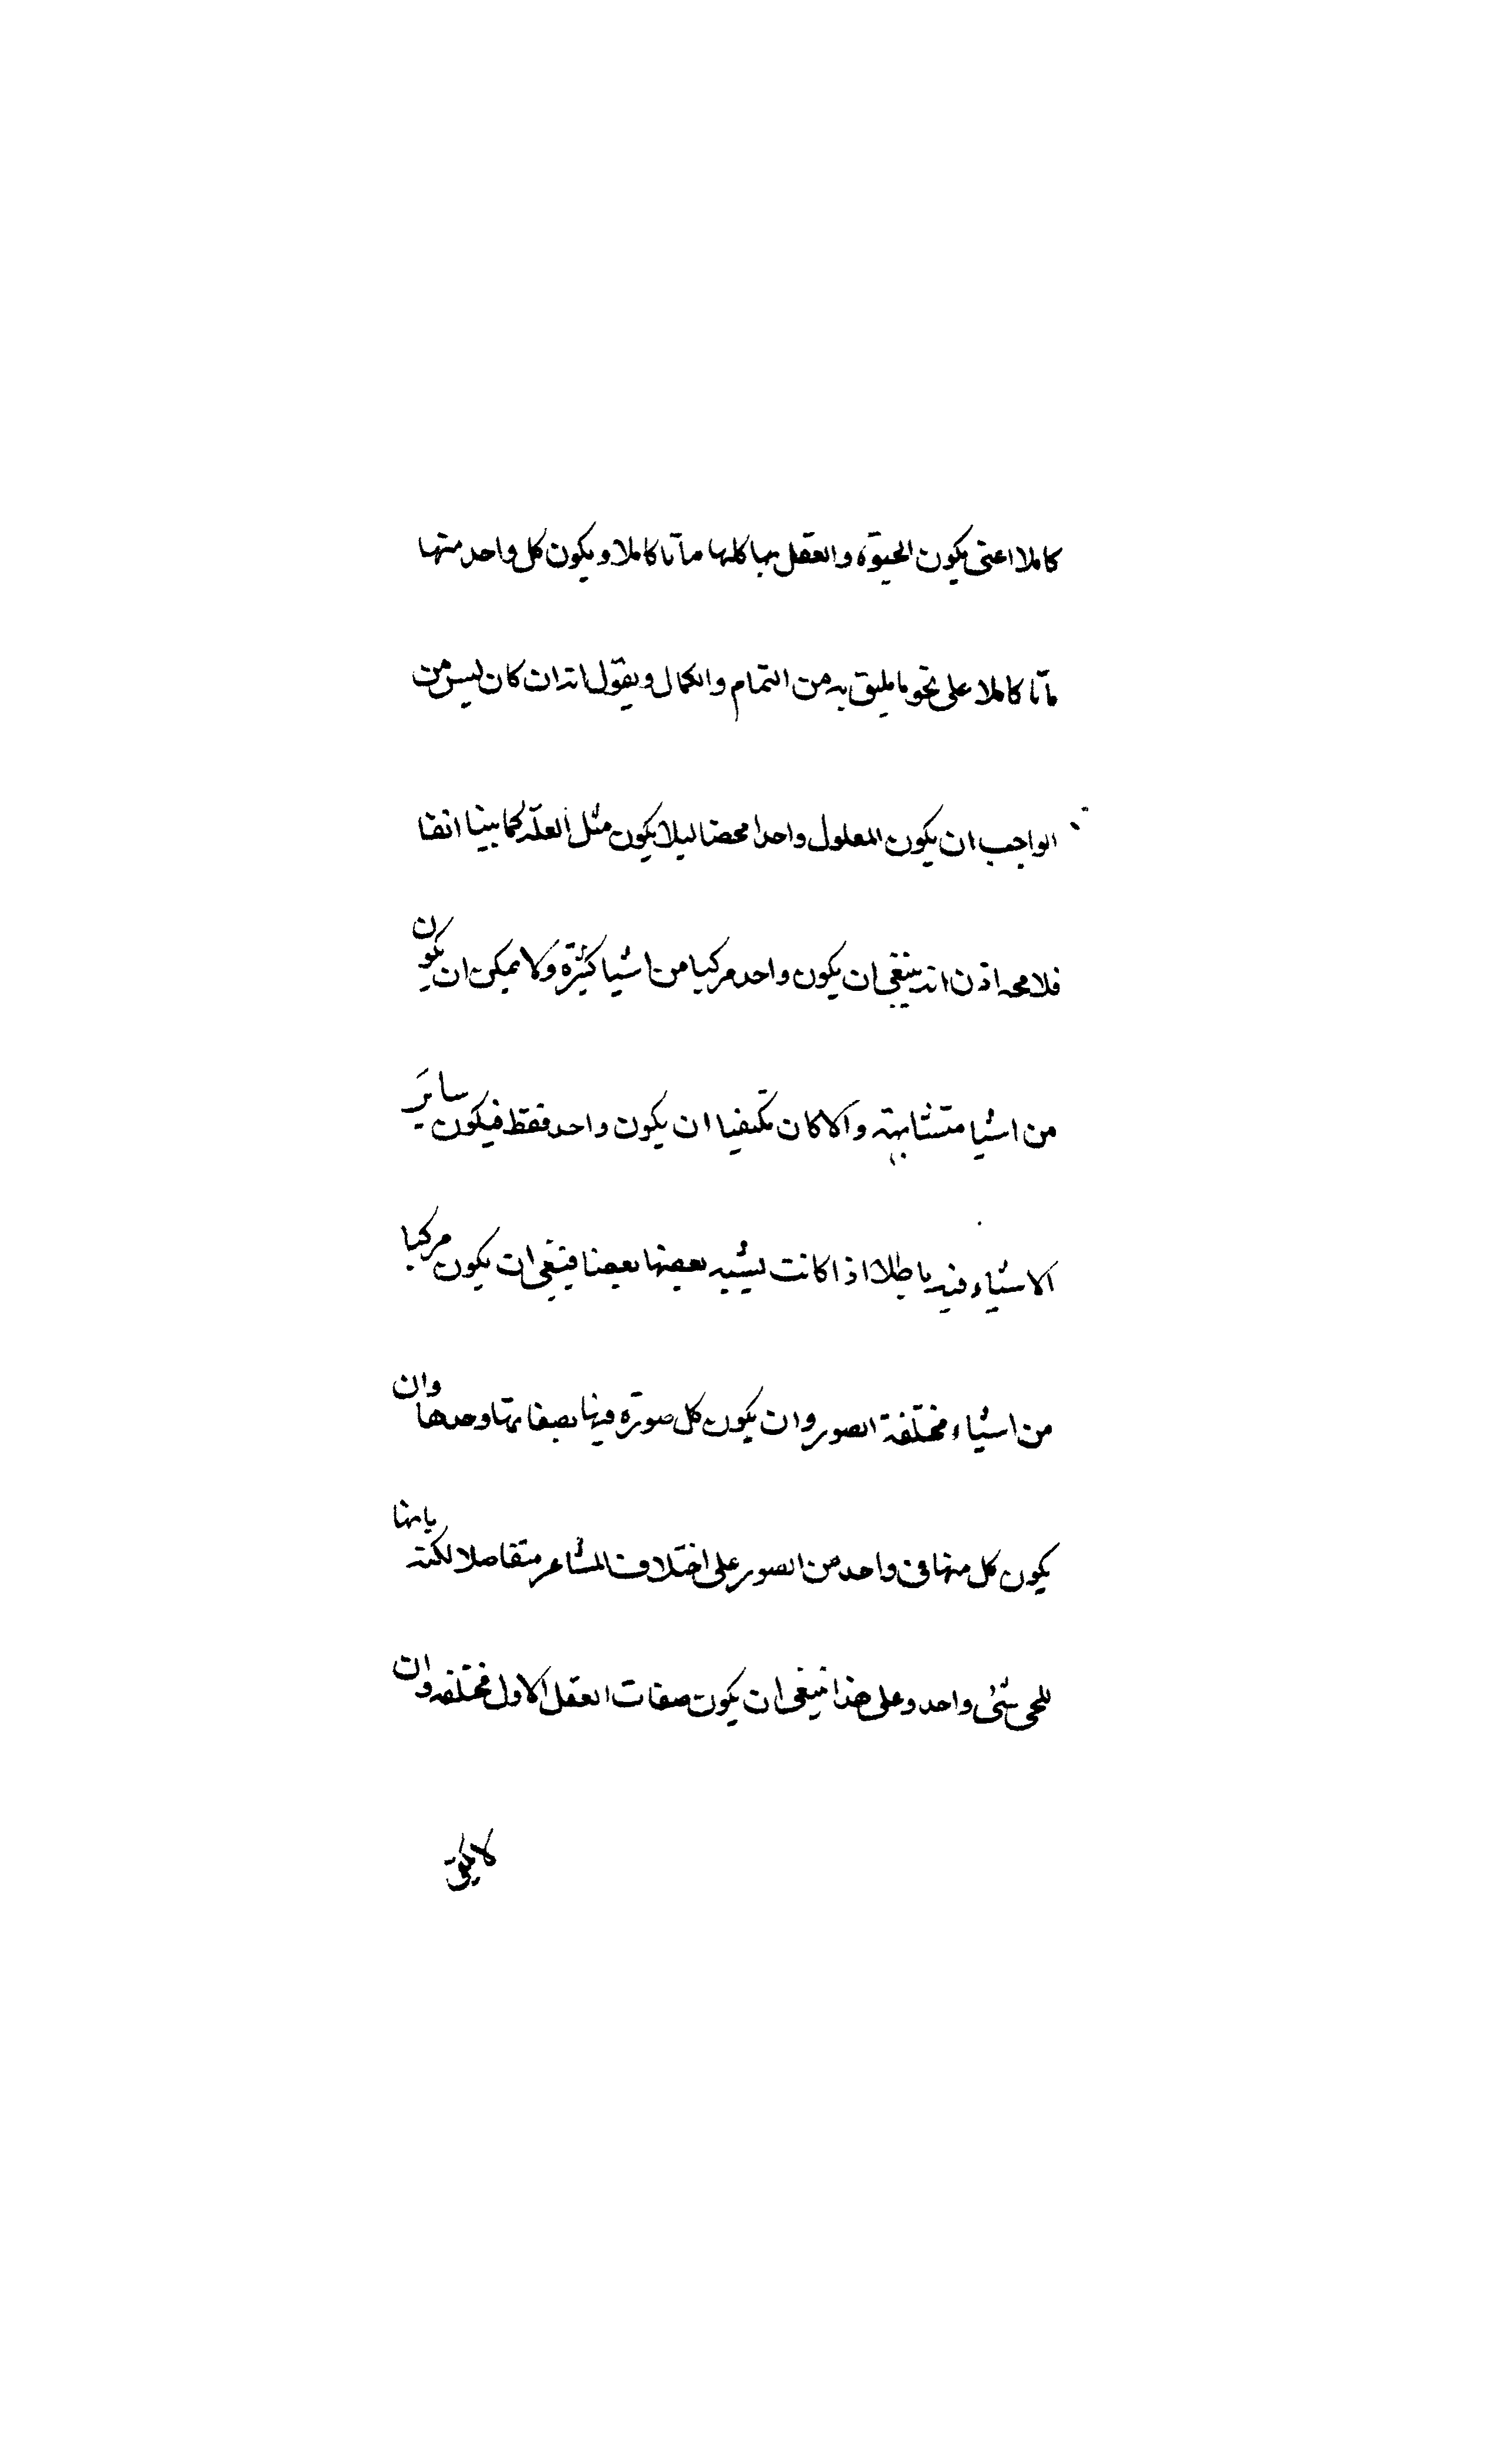 كاملا اعنى يكون الحيوة والعقل بها كلها تاما كاملا ويكون كل واحد منها
تاما كاملا على نحو ما يليق به من التمام والكمال ويقول انه ان كان ليس من
الواجب ان يكون المعلول واحدا محضا ليلا يكون مثل العلة كما بينا انفا
فلا محه اذن انه ينبغى ان يكون واحد مركبا من اشيا كثيرة ولا يمكن ان يكون
من اشيا متشابهة والا كان مكتفيا ان يكون واحد فقط فيكون ساير
الاشياء فيه باطلا اذا كانت يشبه بعضها بعضا فينبغى ان يكون مركبا
من اشياء مختلفة الصور وان يكون كل صورة فيها بصفاتها وحدها وان
يكون كل منها فى واحد من الصور على اختلاف المشاعر متفاصلا لكنه بانها
للحى شئ واحد وعلى هذا ينبغى ان يكون صفات العقل الاول مختلفه وان
لا يكون